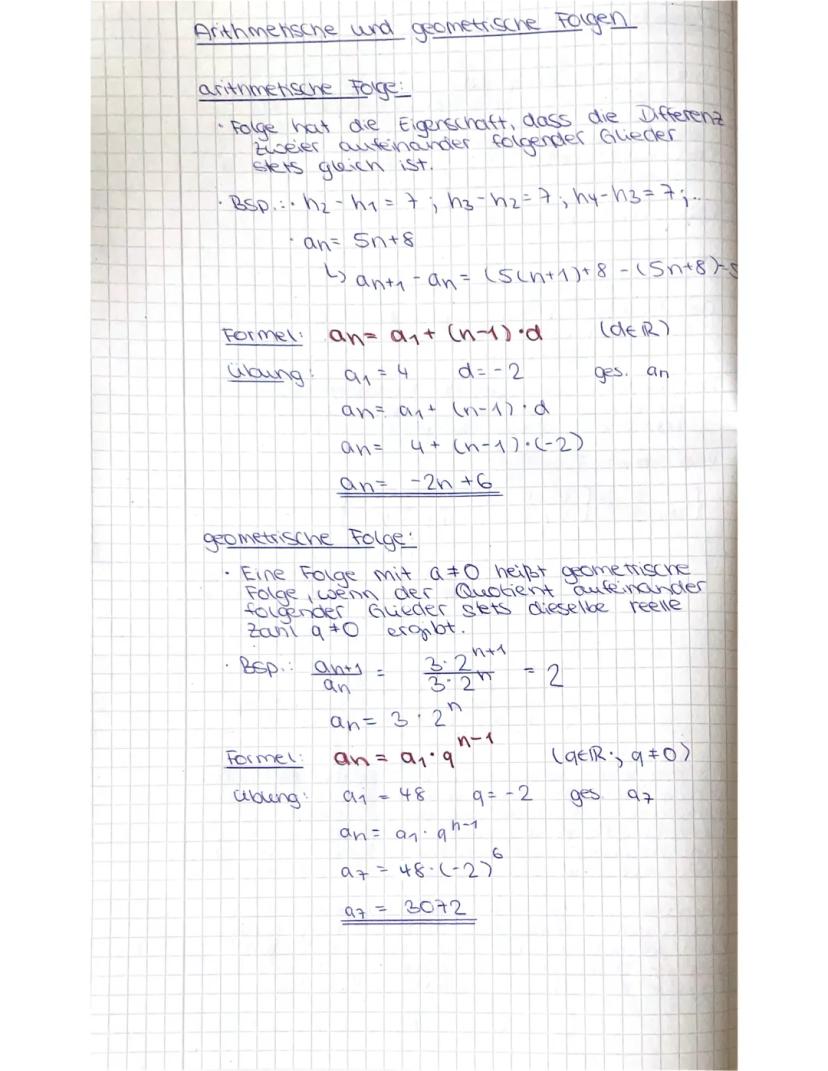 Arithmetische und geometrische Folgen
arithmetische Folge:
• Folge hat die Eigenschaft, dass die Differenz
zweier aufeinander folgender Glieder
stets gleich ist.
• Bsp.: • h₂ - h₁ = 7 ; h₃ - h₂ = 7 ; h₄ - h₃ = 7 ; ..
• an = 5n+8
↳ an+1 - an = (5(n+1)+8 - (5n+8)=5
Formel: an = a₁ + (n-1) · d (d∈ℝ)
Übung: a₁ = 4 d = -2 ges. an
an = a₁ + (n-1) · d
an = 4 + (n-1) · (-2)
an = -2n + 6
geometrische Folge:
• Eine Folge mit a ≠ 0 heißt geometrische
Folge, wenn der Quotient aufeinander
folgender Glieder stets dieselbe reelle
Zahl q ≠ 0 ergibt.
• Bsp.: an+1 / an = 3·2ⁿ⁺¹ / 3·2ⁿ = 2
an = 3 · 2ⁿ
Formel: an = a₁ · qⁿ⁻¹ (q∈ℝ ; q ≠ 0)
Übung: a₁ = 48 q = -2 ges. a₇
an = a₁ · qⁿ⁻¹
a₇ = 48 · (-2)⁶
a₇ = 3072